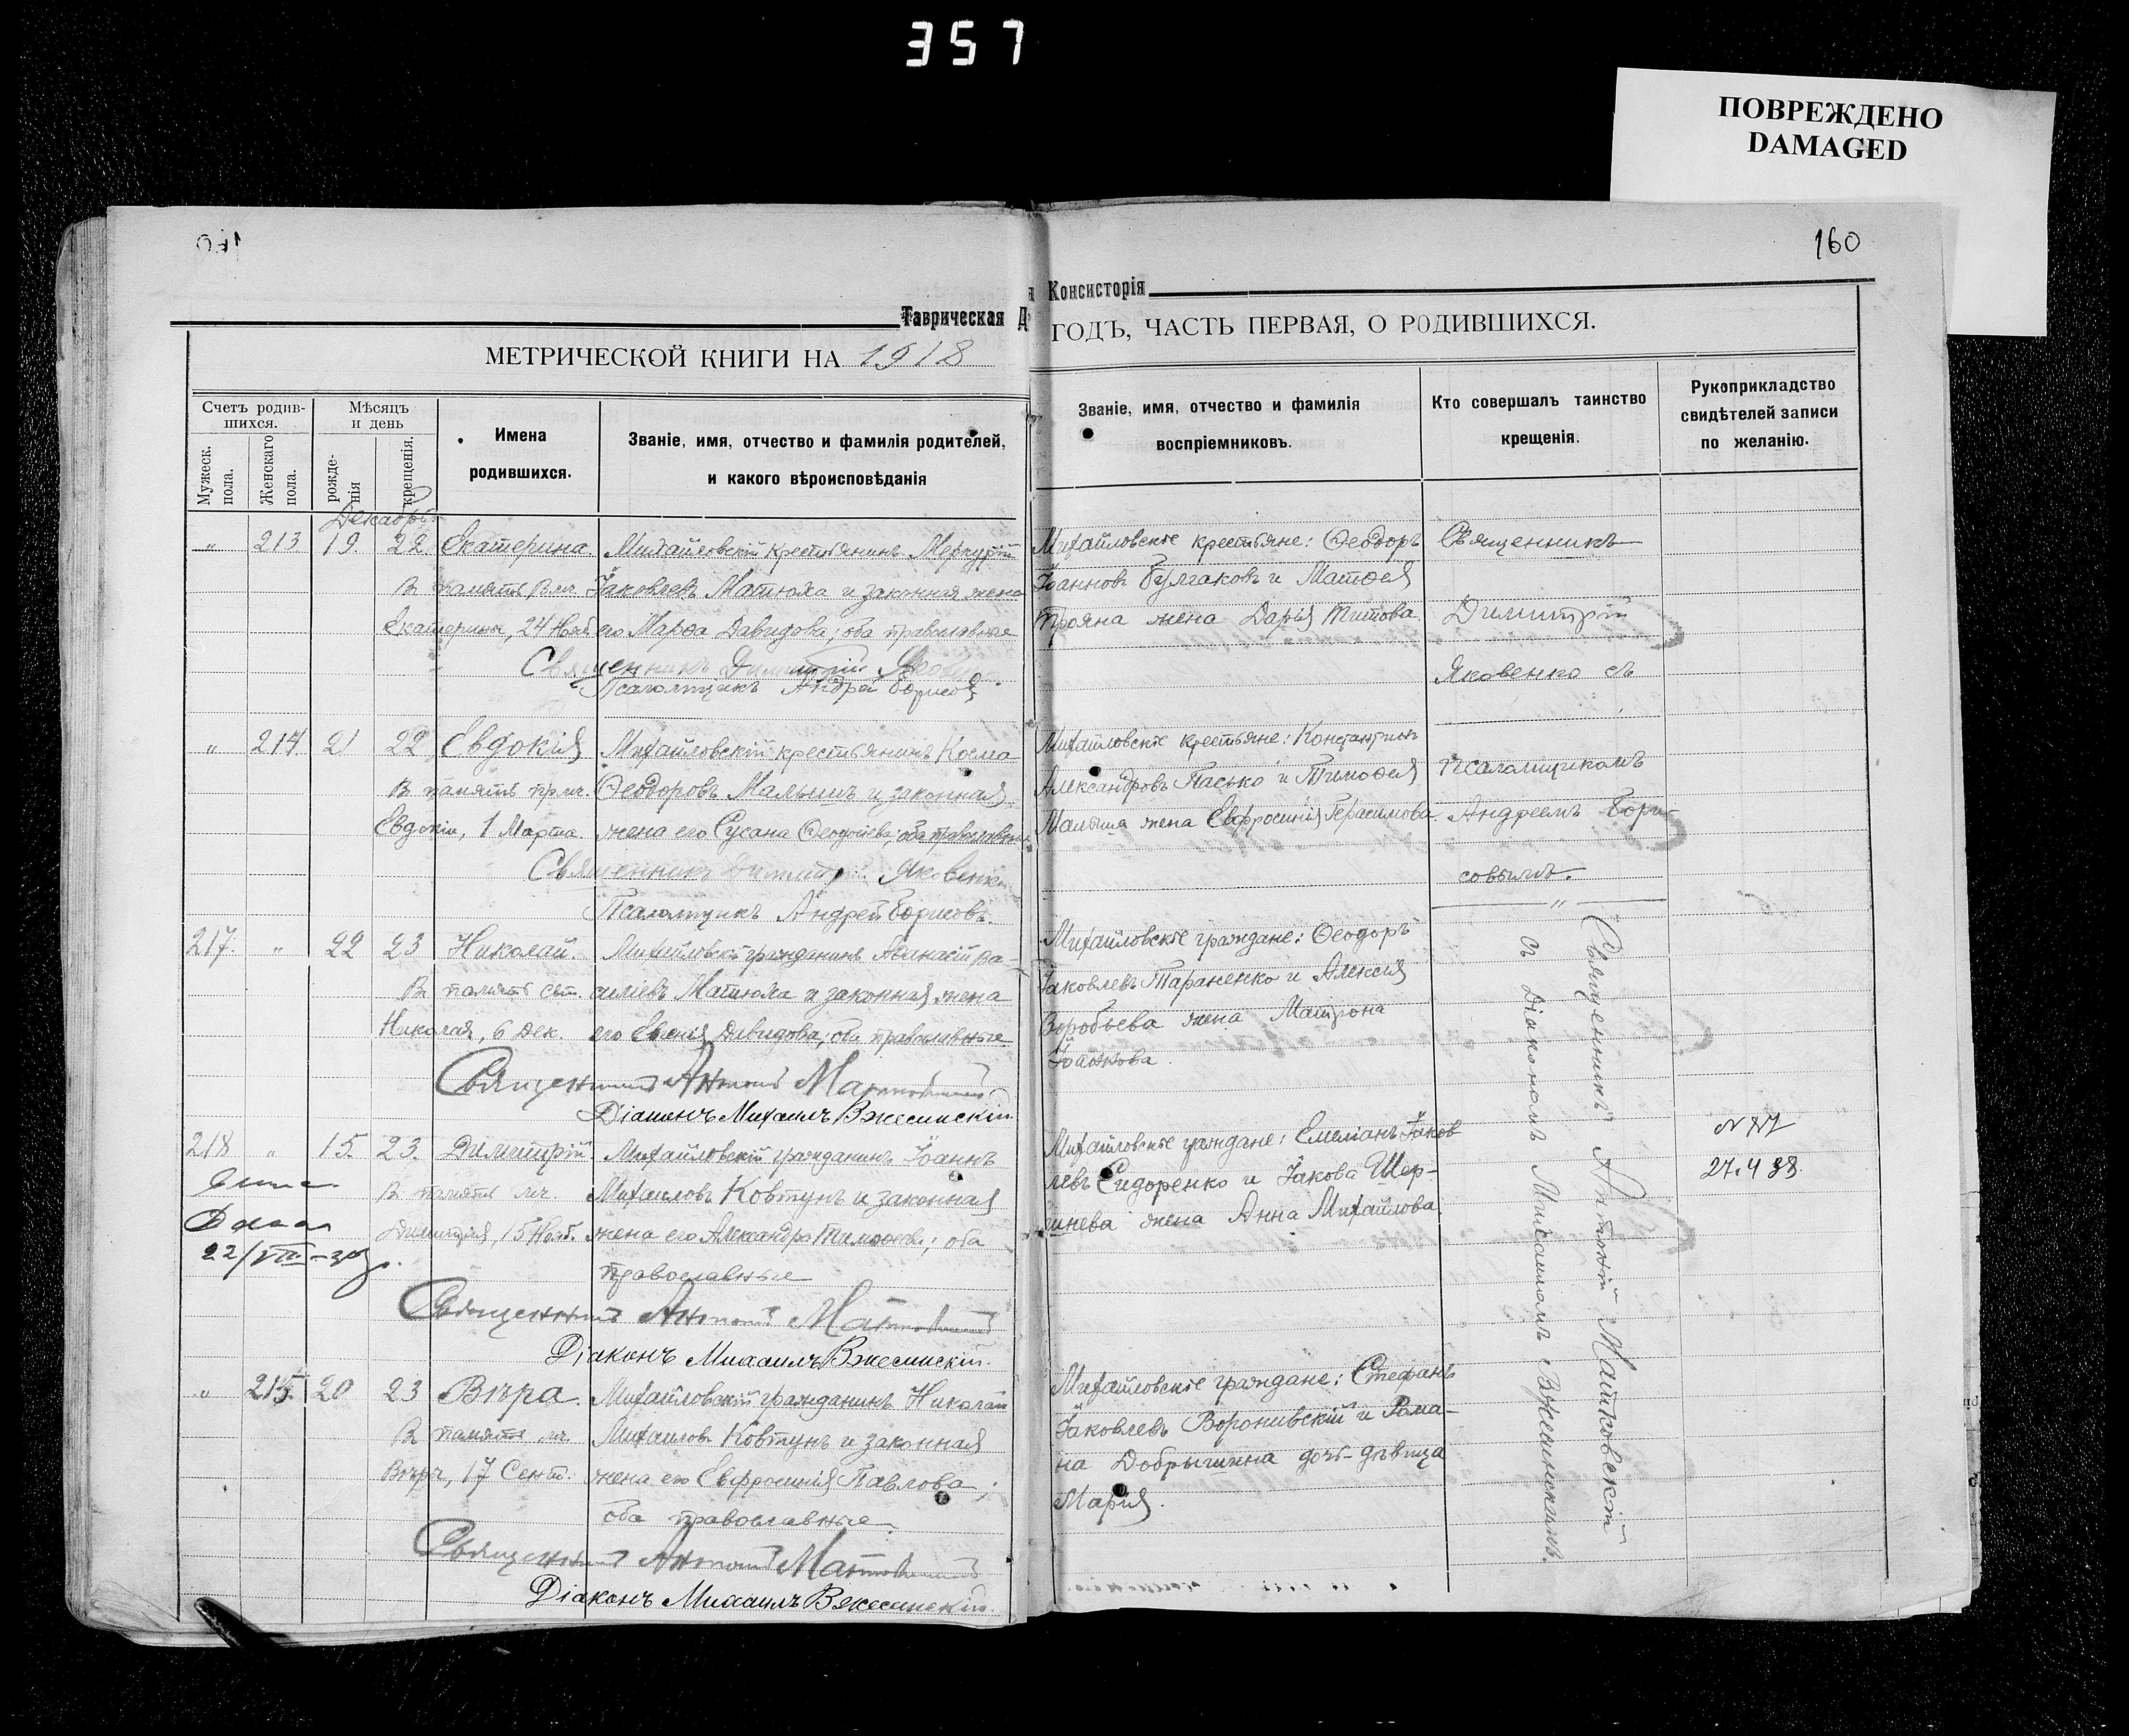 357
ПОВРЕЖДЕНО
DAMAGED
160
Таврическая Д
я Консисторія
МЕТРИЧЕСКОЙ КНИГИ НА 1918
ГОДЪ, ЧАСТЬ ПЕРВАЯ, О РОДИВШИХСЯ.
Счетъ родив-
шихся.
Мужеск.
пола.
Женскаго
пола.
Мѣсяцъ
и день
рожде-
нія
крещенія.
Имена
родившихся.
Званіе, имя, отчество и фамилія родителей,
и какого вѣроисповѣданія
Званіе, имя, отчество и фамилія
воспріемниковъ.
Кто совершалъ таинство
крещенія.
Рукоприкладство
свидѣтелей записи
по желанію.
Декабрь
„ 213 19. 22 Екатерина. Михайловскій крестьянинъ Меркурій
В память Вмч. Іаковлевъ Матюха и законная жена
Екатерины, 24 Нояб. его Марѳа Давидова; оба православные
Священникъ Димитрій Яковенко
Псаломщикъ Андрей Борисов
Михайловскіе крестьяне: Ѳеодоръ
Іоанновъ Булгаковъ и Матѳея
Трояна жена Дарія Титова.
Священникъ
Димитрій
Яковенко съ
псаломщикомъ
Андреемъ Бори-
совымъ.
„ 214 21 22 Евдокія Михайловскій крестьянинъ Косма
В память прмч. Ѳеодоровъ Малышъ и законная
Евдокіи, 1 Марта жена его Сусана; оба православные
Священникъ Димитрій Яковенко
Псаломщикъ Андрей Борисовъ.
Михайловскіе крестьяне: Константинъ
Александровъ Пасько и Тимоѳея
Малыша жена Евфросинія Герасимова.
217. „ 22 23 Николай. Михайловскій гражданинъ Аѳанасій Ва-
В память свт. силіевъ Матюха и законная жена
Николая, 6 Дек. его Давидова; оба православные
Священникъ Антоній Матковскій
Діаконъ Михаилъ Вжесинскій.
Михайловскіе граждане: Ѳеодоръ
Іаковлевъ Тараненко и Алексія
Воробьева жена Матрона
Іоаннова.
Священникъ Антоній Матковскій
съ Діакономъ Михаиломъ Вжесинскимъ.
218 „ 15. 23. Димитрій. Михайловскій гражданинъ Іоаннъ
В память мч. Михаиловъ Ковтунъ и законная
Димитрія, 15 Нояб. жена его Александра; оба
православные
22/VIII-
Священникъ Антоній Матковскій
Діаконъ Михаилъ Вжесинскій.
Михайловскіе граждане: Емеліанъ Іаков
левъ Сидоренко и Іакова Шер-
шнева жена Анна Михайлова.
27.4 38.
„ 215. 20 23 Вѣра. Михайловскій гражданинъ Николай
В память мч. Михаиловъ Ковтунъ и законная
Вѣры, 17 Сент. жена его Евфросинія Павлова;
оба православные.
Священникъ Антоній Матковскій
Діаконъ Михаилъ Вжесинскій
Михайловскіе граждане: Стефанъ
Іаковлевъ Воронивскій и Рома-
на Добрышина дочь-дѣвица
Марія.